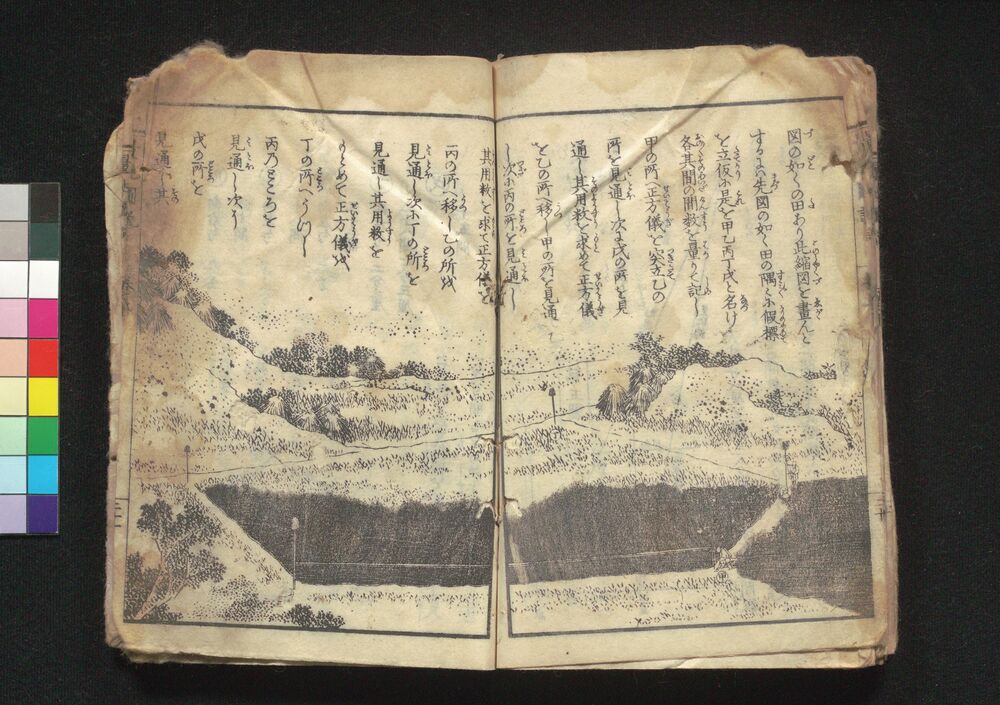 図の如くの田あり此縮図を畫んと
するには先図の如く田の隅々に假標
を立扨に是を甲乙丙丁戊と名け
各其間の間数を量りて記し
甲の所へ正方儀を突立乙の
所を見通し次に戊の所を見
通し其用数を求めて正方儀
を乙の所へ移し甲の所を見通
し次に丙の所を見通し
其用数を求て正方儀を
丙の所へ移し乙の所を
見通し次に丁の所を
見通し其用数を
もとめて正方儀を
丁の所へうつし
丙のところを
見通し次に
戊の所を
見通し其